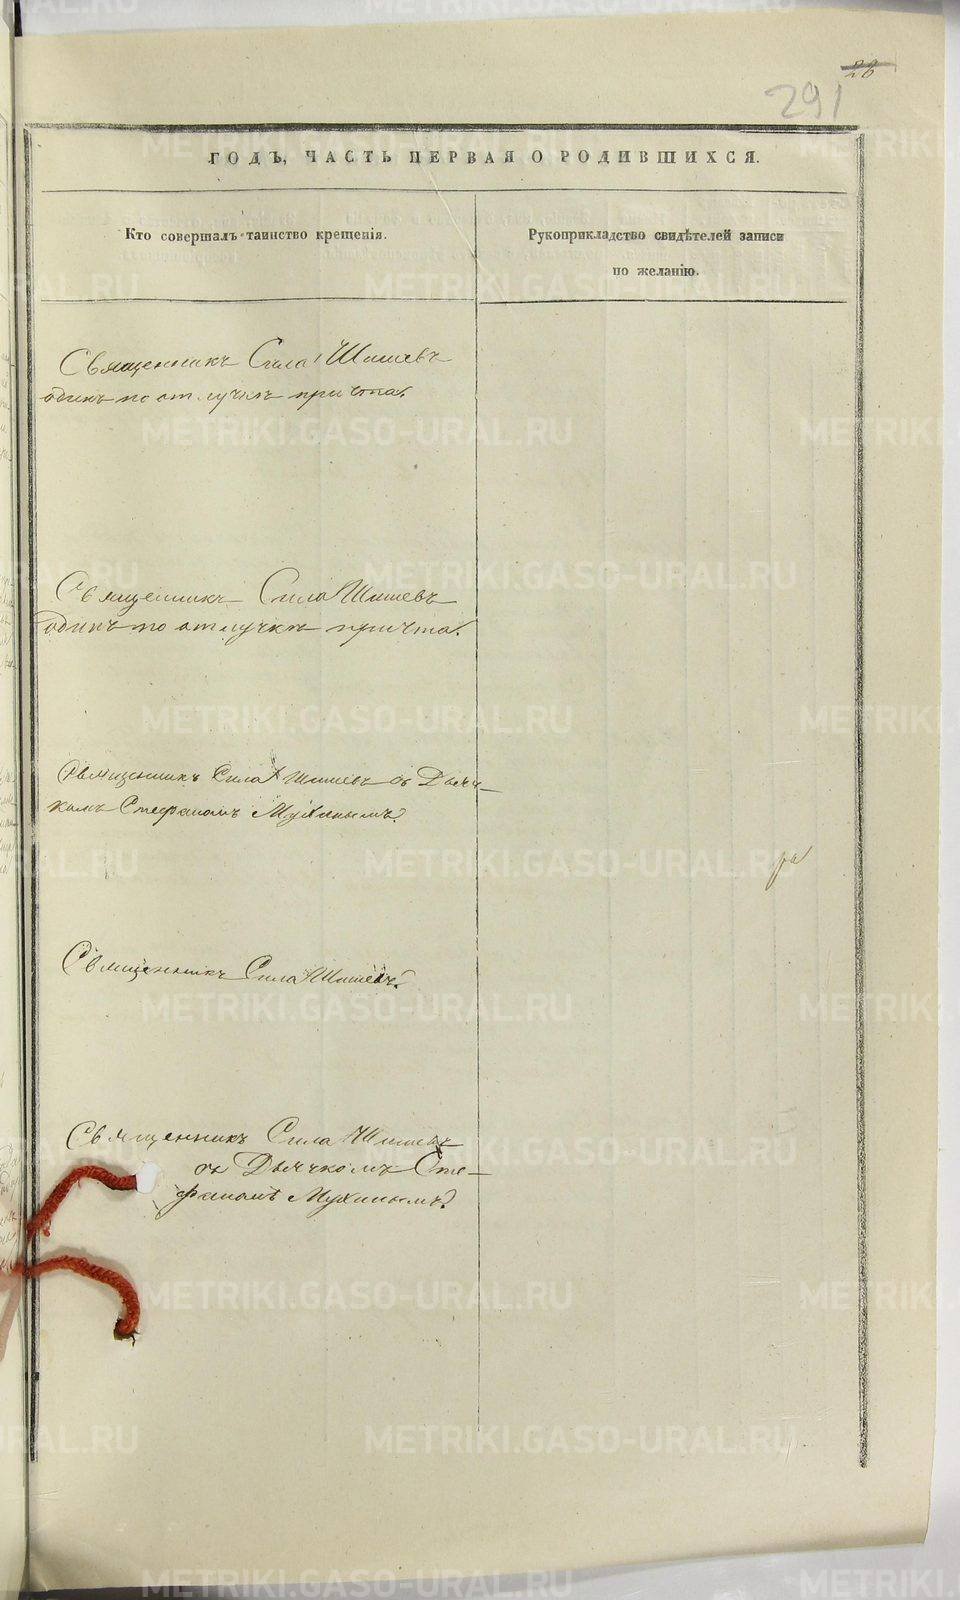 28
291
ГОДЪ, ЧАСТЬ ПЕРВАЯ О РОДИВШИХСЯ.
Кто совершалъ таинство крещенія.
Рукоприкладство свидѣтелей записи
по желанію.
Священникъ Сила Шишевъ
одинъ по отлучкѣ причта.
Священникъ Сила Шишевъ
одинъ по отлучкѣ причта.
Священникъ Сила Шишевъ съ Дьяч-
комъ Стефаномъ Мухинымъ.
Священникъ Сила Шишевъ.
Священникъ Сила Шишевъ
съ Дьячкомъ Сте-
фаномъ Мухинымъ.
METRIKI.GASO-URAL.RU